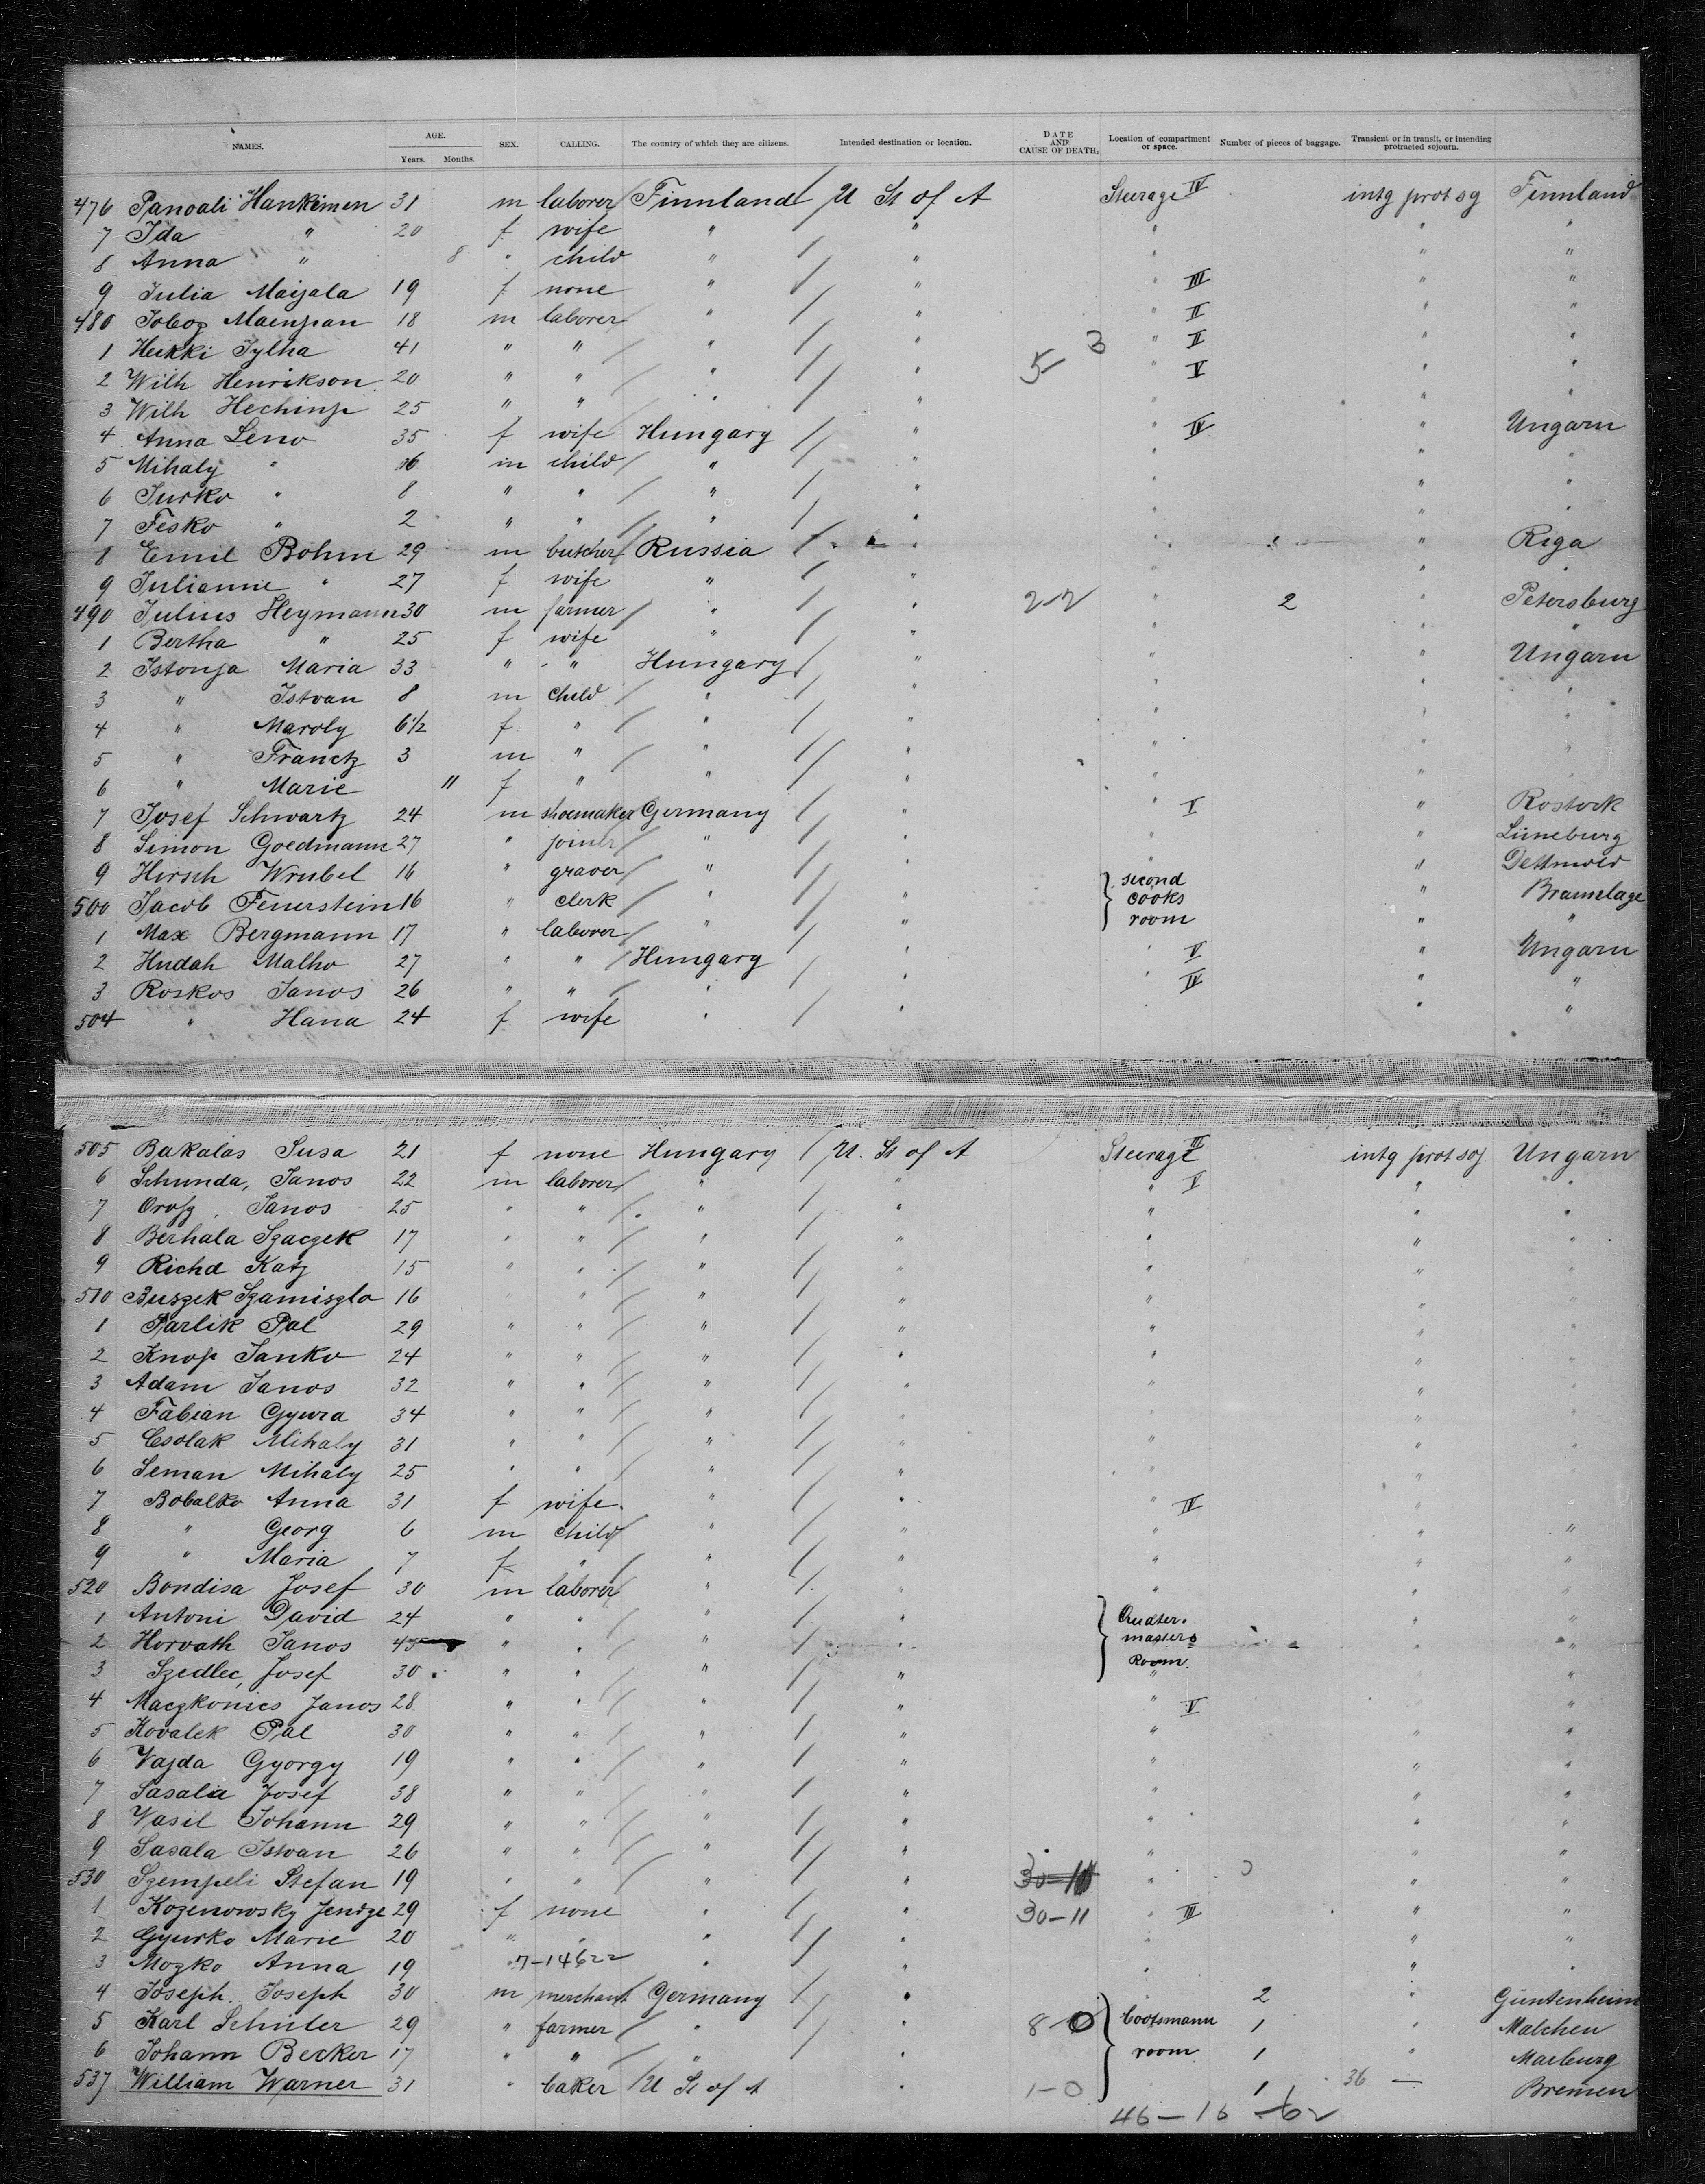 NAMES. AGE. Years. Months. SEX. CALLING. The country of which they are citizens. Intended destination or location. DATE AND CAUSE OF DEATH. Location of compartment or space. Number of pieces of baggage. Transient or in transit, or intending protracted sojourn.
476 Panoali Hankimen 31 m laborer Finnland U St of A Steerage IV intg prot sg Finnland
7 Ida " 20 f wife " " " " "
8 Anna " 8 " child " " " " "
9 Julia Maijala 19 f none " " " III " "
480 Maenpan 18 m laborer " " " II " "
1 Heikki Jylha 41 " " " " 3 " II " "
2 Wilh Henrikson 20 " " " " 5 " V " "
3 Wilh 25 " " " " " " "
4 Anna Leno 35 f wife Hungary " " IV " Ungarn
5 Mihaly " m child " " " " "
6 Jurko " 8 " " " " " " "
7 Fesko " 2 " " " " " " "
8 Emil Bohm 29 m butcher Russia " " " Riga
9 Julianne " 27 f wife " " " " "
490 Julius Heymann 30 m farmer " " 2-2 " 2 " Petersburg
1 Bertha " 25 f wife " " " " "
2 Istonja Maria 33 " " Hungary " " " Ungarn
3 " Istvan 8 m child " " " " "
4 " Maroly 6½ f " " " " " "
5 " Franctz 3 m " " " " " "
6 " Marie 11 f " " " " " "
7 Josef Schwartz 24 m shoemaker Germany " " I " Rostock
8 Simon Goedmann 27 " joiner " " " " Lüneburg
9 Hirsch Wrubel 16 " graver " " second " Dettmold
500 Jacob Feuerstein 16 " clerk " " cooks " Bramelage
1 Max Bergmann 17 " laborer " " room " "
2 Hudah Malho 27 " " Hungary " " V " Ungarn
3 Roskos Janos 26 " " " " " IV " "
504 " Hana 24 f wife " " " "
505 Bakalas Susa 21 f none Hungary U. St of A Steerage III intg prot soj Ungarn
6 Schunda, Janos 22 m laborer " " " V " "
7 Janos 25 " " " " " " "
8 Berhala Szaczek 17 " " " " " " "
9 Richd Katz 15 " " " " " " "
510 Buszek Szamiszlo 16 " " " " " "
1 Parlik Pal 29 " " " " " " "
2 Knop Janko 24 " " " " " " "
3 Adam Janos 32 " " " " " " "
4 Fabian Gyura 34 " " " " " " "
5 Csolak Mihaly 31 " " " " " " "
6 Seman Mihaly 25 " " " " " " "
7 Bobalko Anna 31 f wife " " " IV " "
8 " Georg 6 m child " " " " "
9 " Maria 7 f " " " " " "
520 Bondisa Josef 30 m laborer " " " " "
1 Antoni David 24 " " " " Quater " "
2 Horvath Janos 45 " " " " masters " "
3 Szedlec, Josef 30 " " " " Room. " "
4 Maczkonics Janos 28 " " " " " V "
5 Kovalek Pal 30 " " " " " " "
6 Vajda Gyorgy 19 " " " " " " "
7 Sasala Josef 38 " " " " " " "
8 Vasil Johann 29 " " " " " " "
9 Sasala Istvan 26 " " " " " " "
530 Szempeli Stefan 19 " " " " " " "
1 Kozenowsky 29 f none " " 30-11 " III " "
2 Gyurko Marie 20 " " " " " " "
3 Mozko Anna 19 " " " " "
4 Joseph Joseph 30 m merchant Germany " 2 " Guntenheim
5 Karl Schüler 29 " farmer " " 8-0 Bootsmann 1 " Malchen
6 Johann Becker 17 " " " " room 1 " Marburg
537 William Warner 31 " baker U St of A " 1-0 1 36 — Bremen
46-16